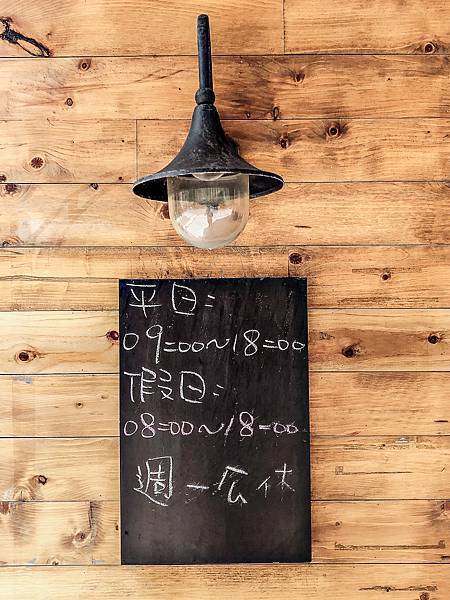 平日:
09:00~18:00
假日:
08:00~18:00
週一公休